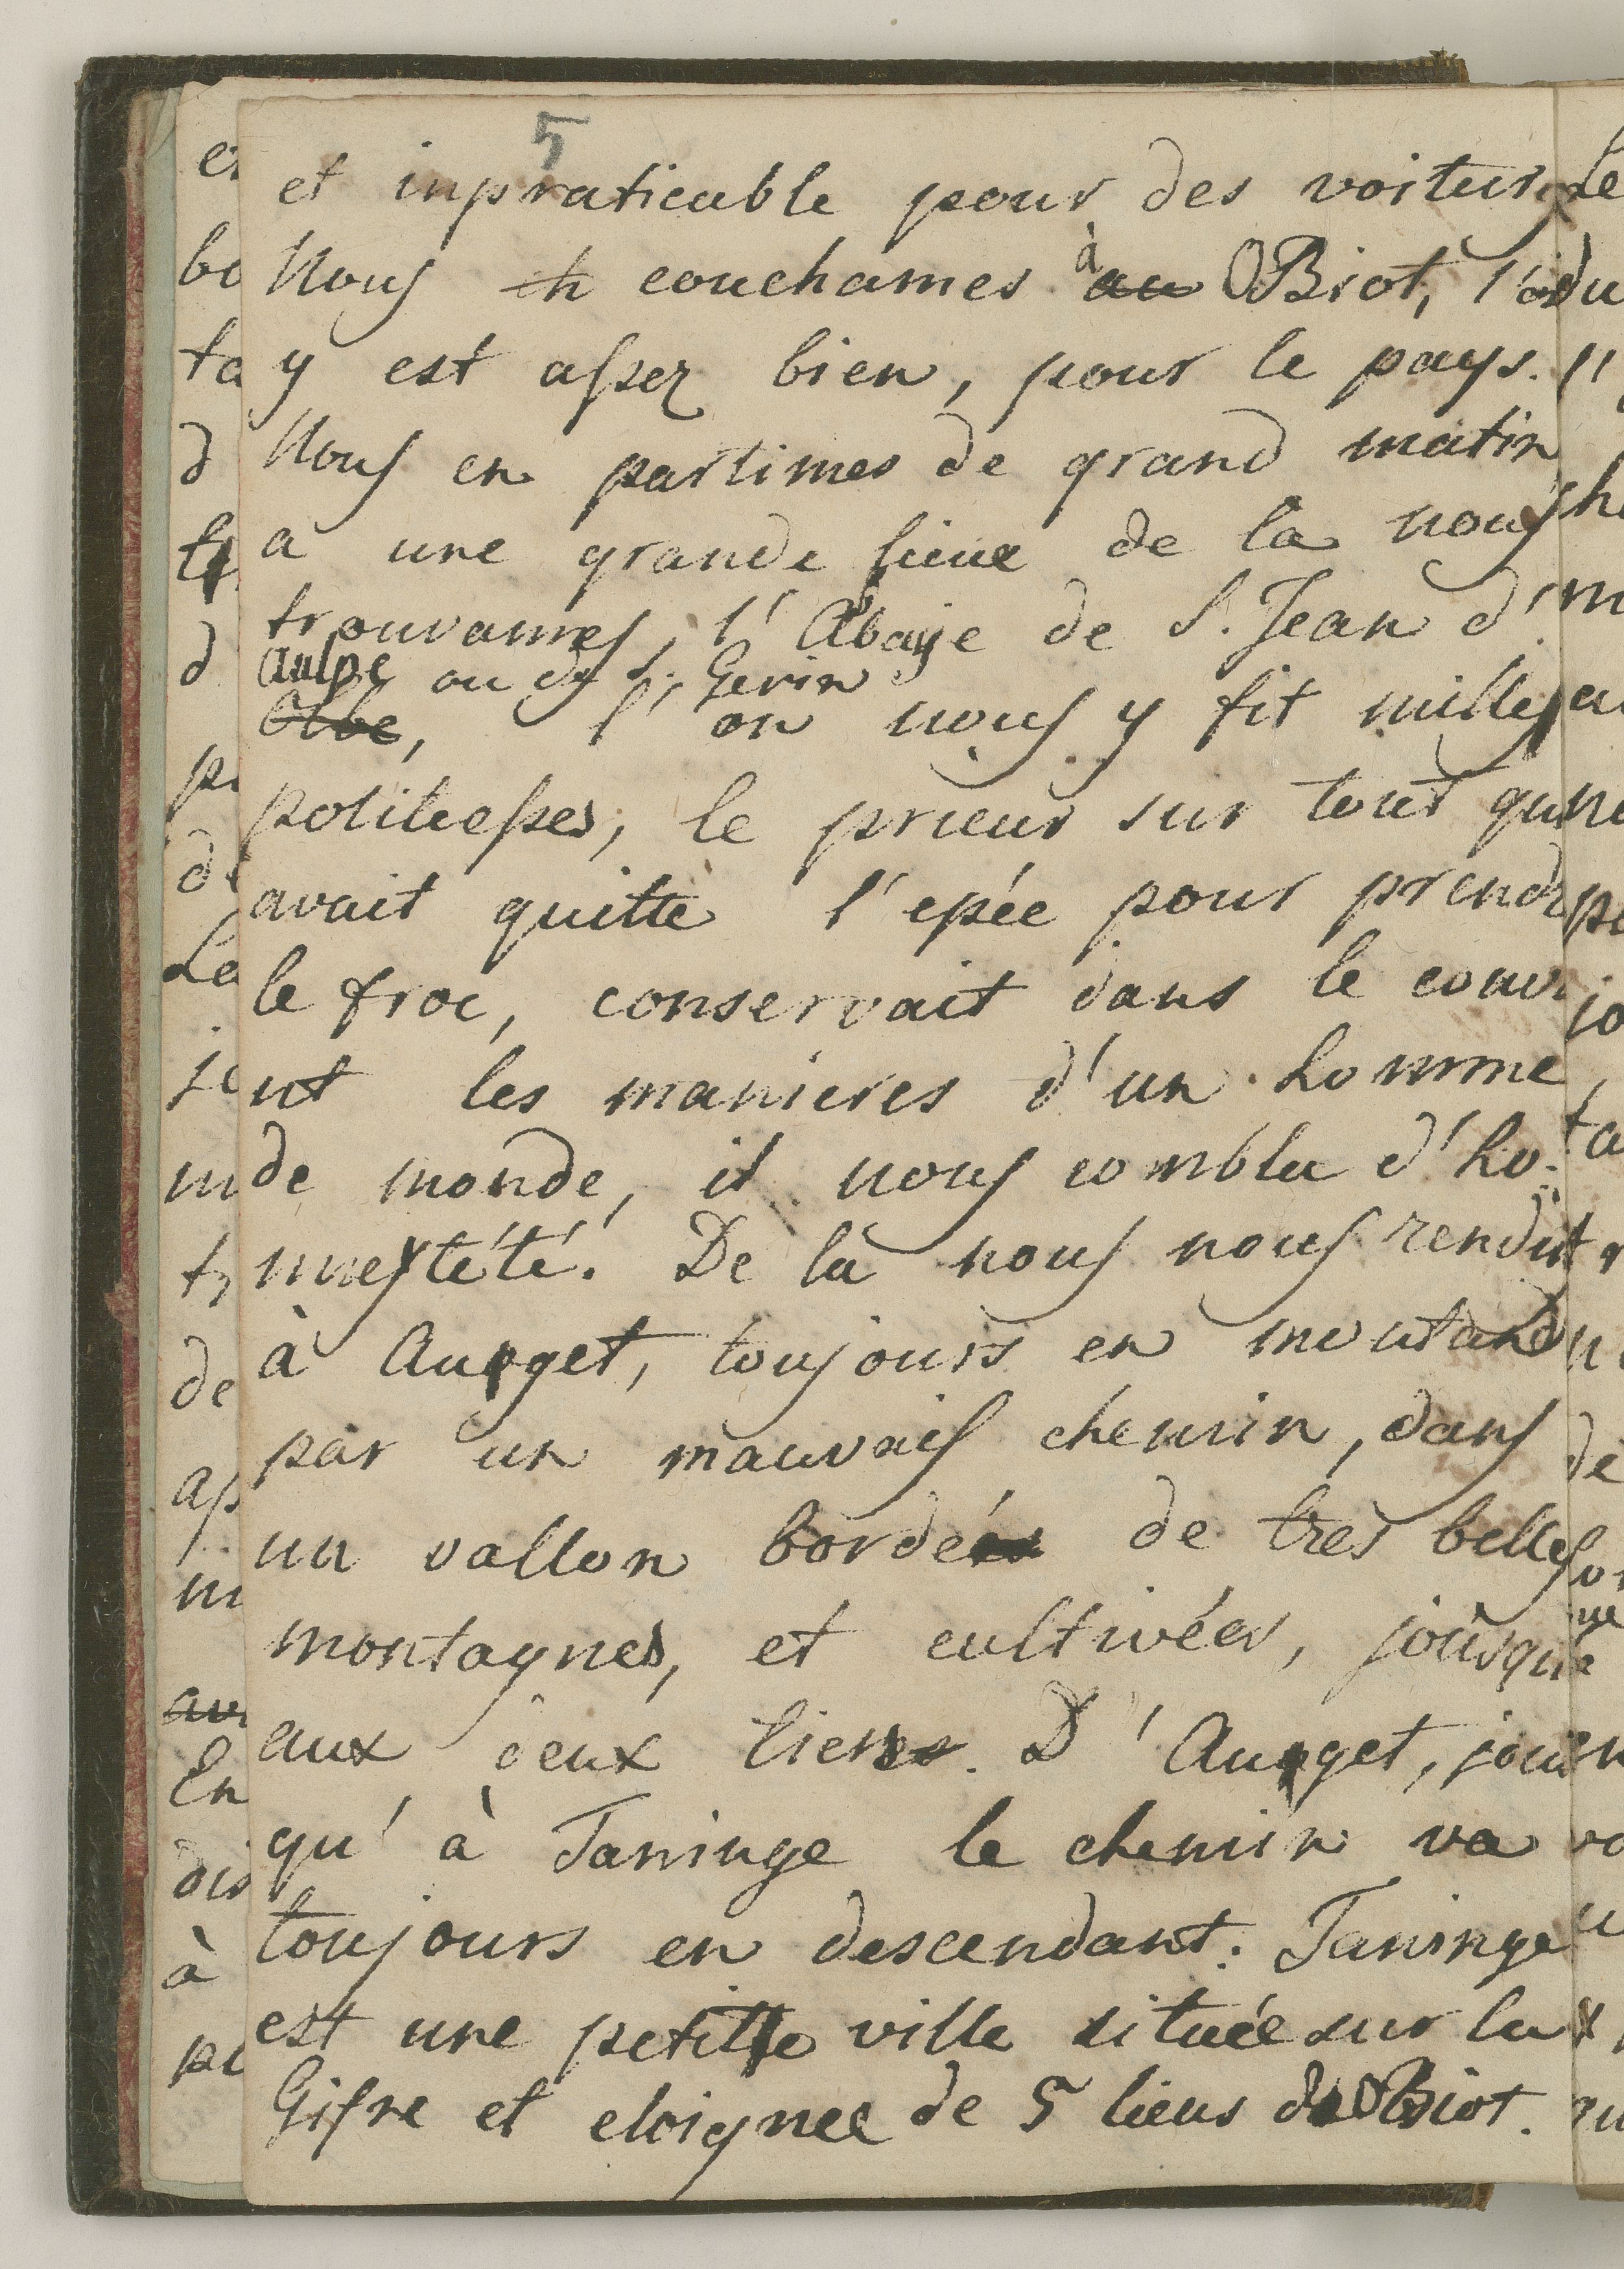 5
et inpraticable pour des voitur
Nous couchames à au Biot, l'on
y est assez bien, pour le pays.
Nous en partimes de grand matin
a une grande lieue de la nous
trouvames, l'Abaye de S. Jean d'
Aulpe ou de S. Gerin
Olbe, l'on nous y fit milles
politesses, le prieur sur tout qui
avait quitté l'epée pour prendr
le froc, conservait dans le couv
nt les manieres d'un homme
de monde, il nous combla d'ho-
nnesteté. De là nous nous rendit
à Auget, toujours en montand
par un mauvais chemin, dans
un vallon bordé de très belles
montagnes, et cultivées, jousque
aux deux tiers. D'Auget, jous
qu'à Taninge le chemin va
toujours en descendant. Taninge
est une petitte ville située sur la
Gifre et eloignee de 5 lieus de Biot.